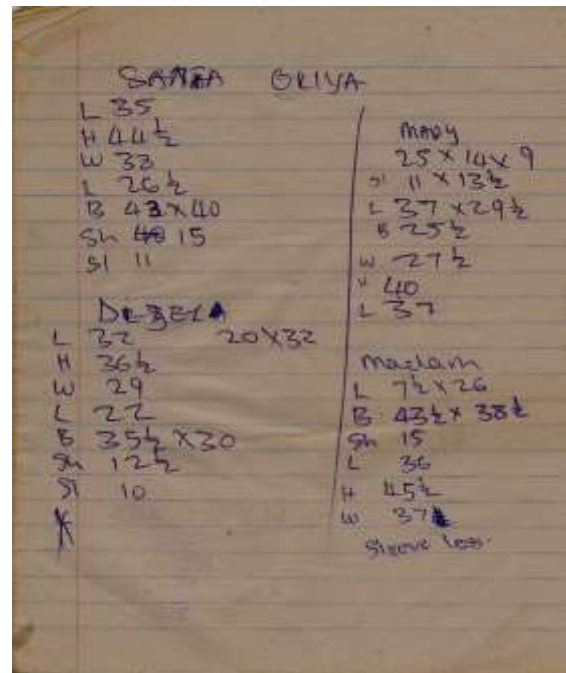 SANTA ORIYA
L 35
H 44½
W 33
L 26½
B 43 x 40
Sh 15
Sl 11
DEBELA
L 32 20 x 32
H 36½
W 29
L 22
B 35½ x 30
Sh 12½
Sl 10
Mary
25 x 14 x 9
Sl 11 x 13½
L 37 x 29½
B 25½
W 27½
H 40
L 37
Madam
L 7½ x 26
B 43½ x 38½
Sh 15
L 36
H 45½
W 37
Sleeve less.